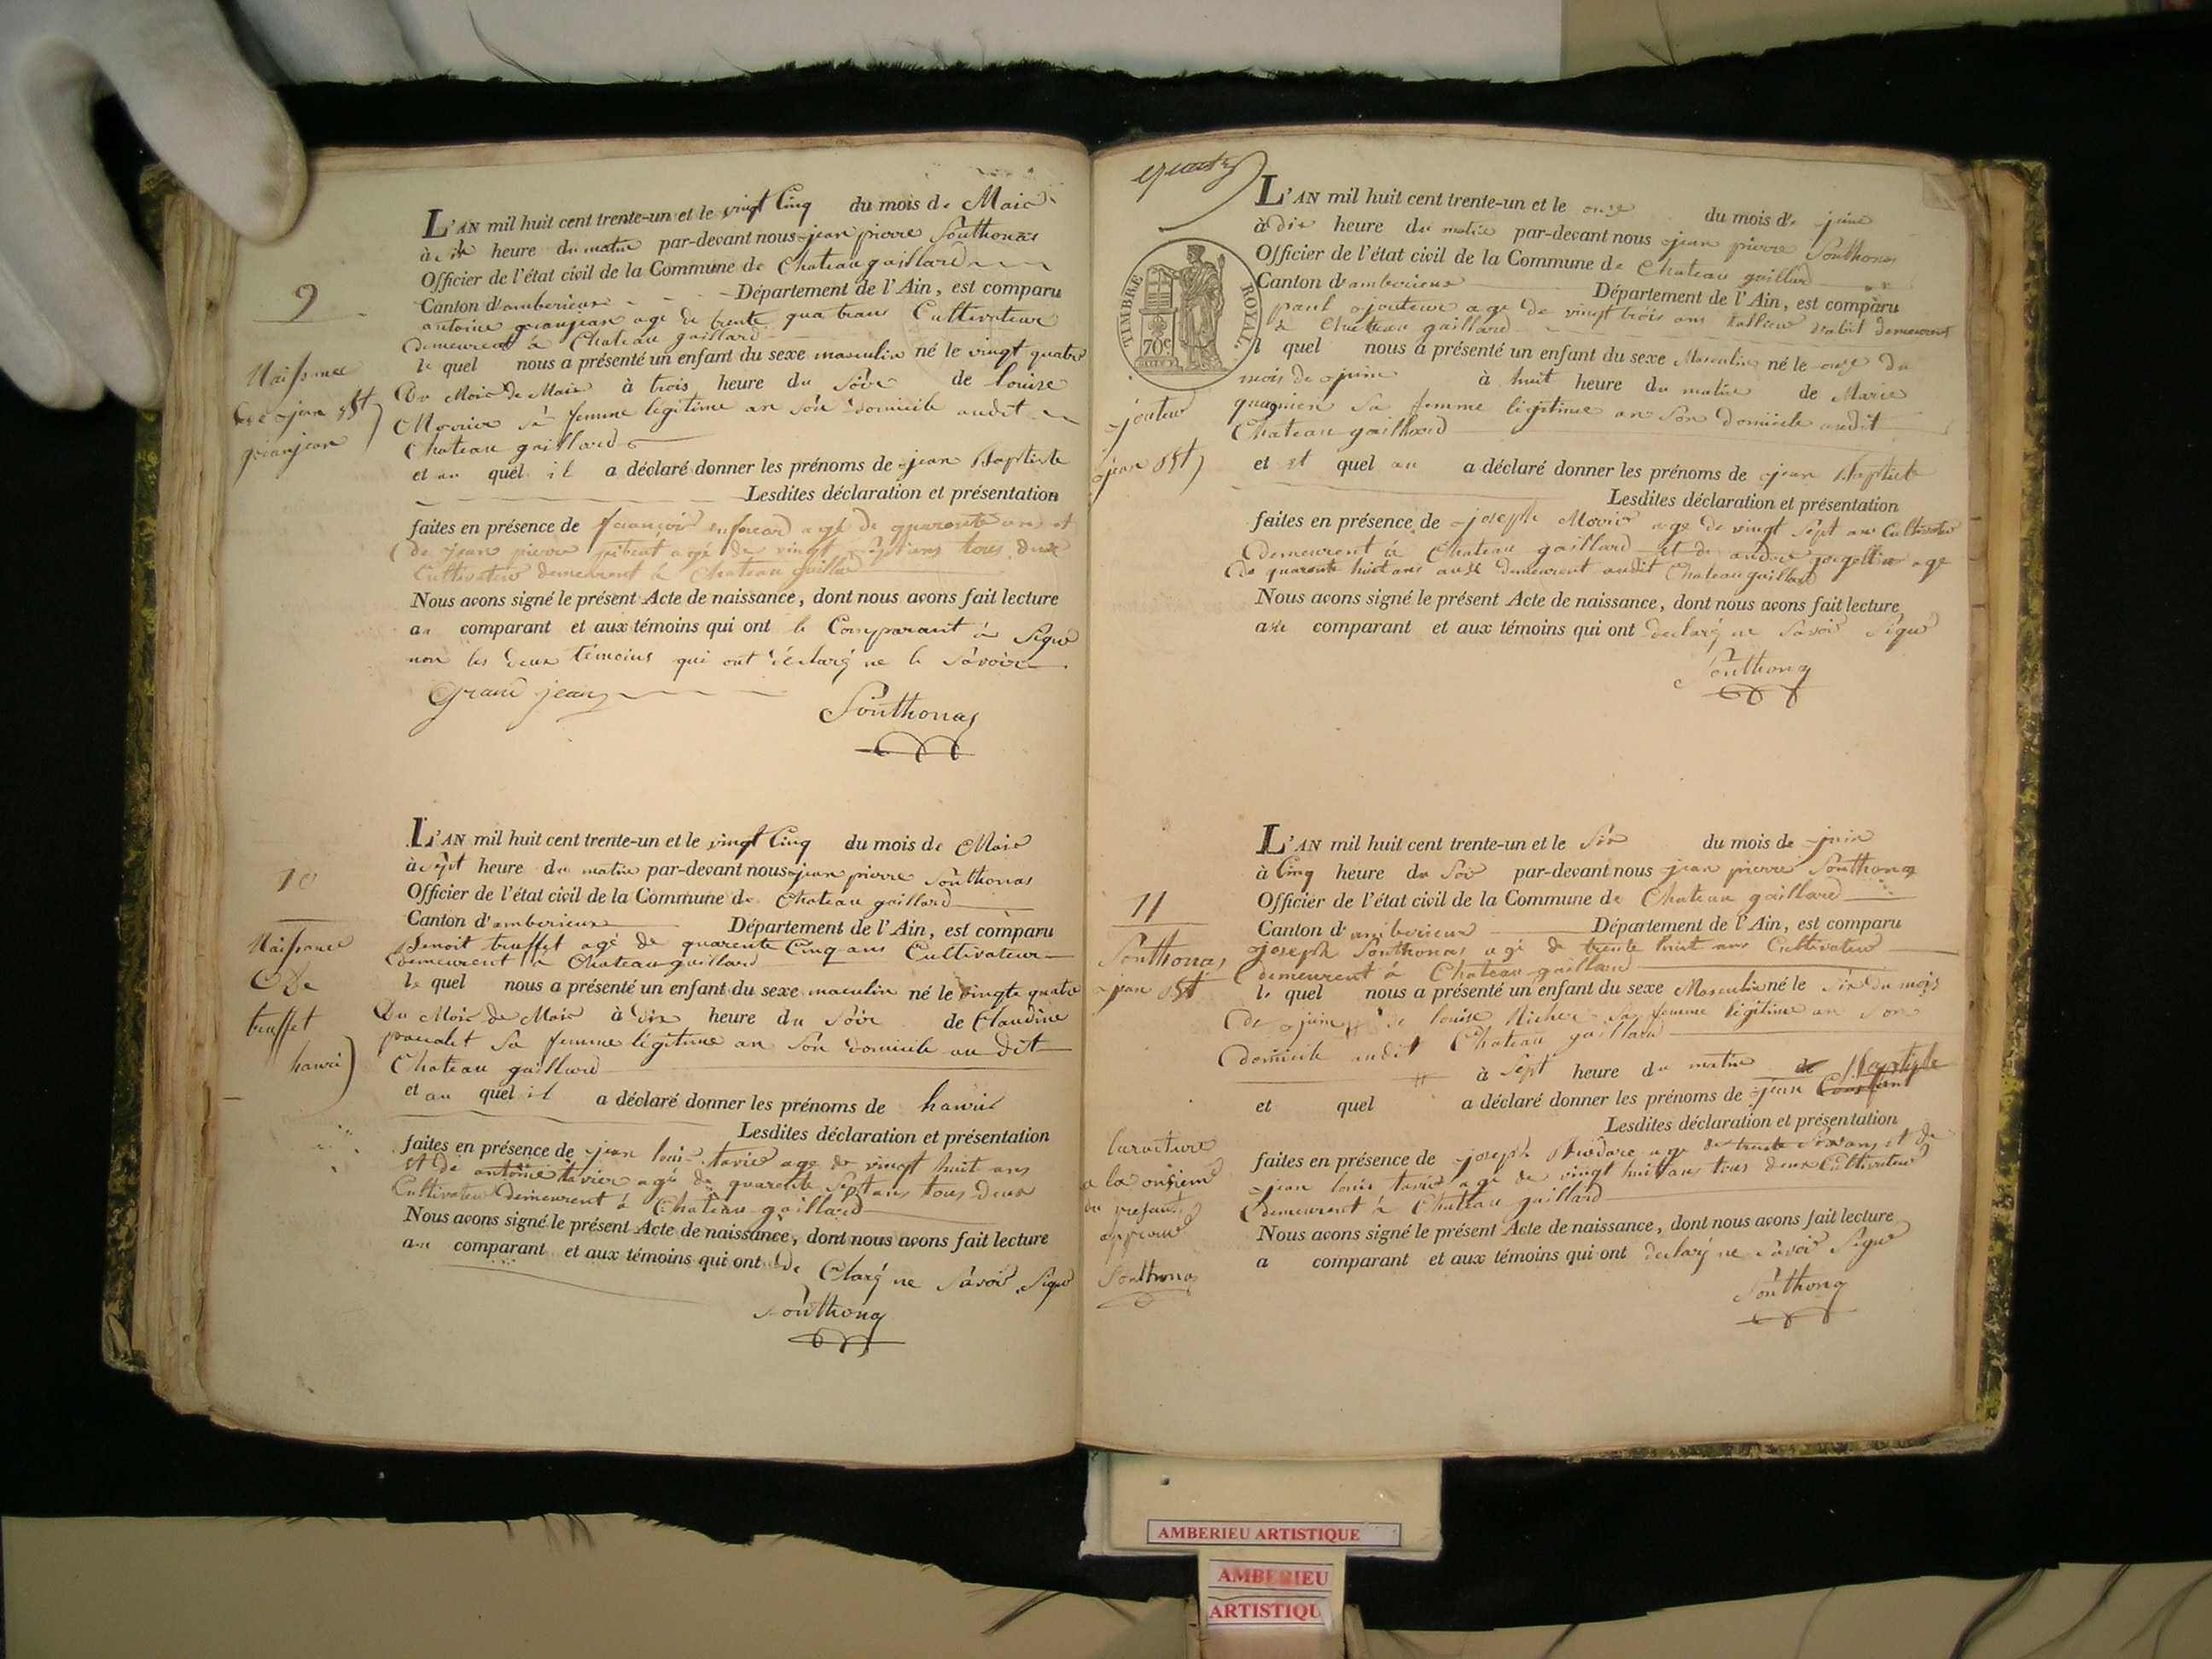 9
Naissance
jean Bt
granjean
L'AN mil huit cent trente-un et le vingt Cinq du mois de Maie
heure du matin par-devant nous jean pierre Southonas
Officier de l'état civil de la Commune de Chateau gaillard
Canton d'amberieux Département de l'Ain, est comparu
antoine granjean agé de trente quatrans Cultivateur
demeurent à Chateau gaillard
le quel nous a présenté un enfant du sexe masculin né le vingt quatre
Du Mois de Maie à trois heure du Soir de louise
Movrier sa femme legitime an son domicile audit
Chateau gaillard
et au quel il a déclaré donner les prénoms de jean Baptiste
Lesdites déclaration et présentation
faites en présence de françois agé de quarente ans et
de jean pierre agé de vingt ans tous deux
Cultivateur demeurent à Chateau gaillard
Nous avons signé le présent Acte de naissance, dont nous avons fait lecture
au comparant et aux témoins qui ont le Comparant à Signé
non les deux témoins qui ont déclaré ne le Savoire
Grand jean
Southonas
10
Naissance
De
truffet
hanri
L'AN mil huit cent trente-un et le vingt Cinq du mois de Maie
à sept heure du matin par-devant nous jean pierre Southonas
Officier de l'état civil de la Commune de Chateau gaillard
Canton d'amberieux Département de l'Ain, est comparu
Benoit truffet agé de quarente Cinq ans Cultivateur
demeurent à Chateau gaillard
le quel nous a présenté un enfant du sexe maculin né le vingte quatre
Du Mois de Maie à dix heure du Soir de Claudine
sa femme legitime an son domicile au dit
Chateau gaillard
et au quel il a déclaré donner les prénoms de hanri
Lesdites déclaration et présentation
faites en présence de jean louis tavier age de vingt huit ans
et de antoine tavier agé de quarente Sept ans tous deux
Cultivateur demeurent à Chateau gaillard
Nous avons signé le présent Acte de naissance, dont nous avons fait lecture
au comparant et aux témoins qui ont de Claré ne Savoir Signé
Southonas
TIMBRE ROYAL
70c
jouteur
jean Bt
L'AN mil huit cent trente-un et le onze du mois de juin
à dix heure du matin par-devant nous jean pierre Southonas
Officier de l'état civil de la Commune de Chateau gaillard
Canton d'amberieux Département de l'Ain, est comparu
paul ajouteur age de vingt trois ans tallieur dabit demeurent
à Chateau gaillard
l quel nous a présenté un enfant du sexe Masculin né le onze du
mois de juin à huit heure du matin de Marie
sa femme legitime an son domicile audit
Chateau gaillard
et et quel au a déclaré donner les prénoms de jean Baptiste
Lesdites déclaration et présentation
faites en présence de joseph Movrier age de vingt Sept ans Cultivateur
demeurent à Chateau gaillard et de andré age
de quarente huit ans aussi demeurent audit Chateau gaillard
Nous avons signé le présent Acte de naissance, dont nous avons fait lecture
au comparant et aux témoins qui ont declaré ne Savoir Signé
Southonas
11
Southonas
jean Bt
L'AN mil huit cent trente-un et le Six du mois de juin
à Cinq heure du Soir par-devant nous jean pierre Southonas
Officier de l'état civil de la Commune de Chateau gaillard
Canton d'amberieux Département de l'Ain, est comparu
joseph Southonas agé de trente huit ans Cultivateur
demeurent à Chateau gaillard
le quel nous a présenté un enfant du sexe Masculin né le Six du mois
de juin de louise Micher sa femme legitime an son
domicile audit Chateau gaillard
à Sept heure du matin de Baptiste
et quel a déclaré donner les prénoms de jean Constant
Lesdites déclaration et présentation
faites en présence de joseph age de trente Six ans et de
jean louis tavier age de vingt huit ans tous deux Cultivateur
demeurent à Chateau gaillard
Nous avons signé le présent Acte de naissance, dont nous avons fait lecture
a comparant et aux témoins qui ont declaré ne Savoir Signé
Southonas
a la onsieme
du presant
approuvé
Southonas
AMBERIEU ARTISTIQUE
AMBERIEU
ARTISTIQU